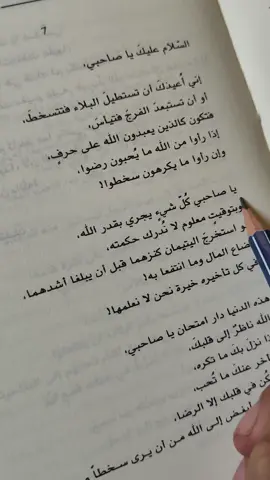 7
السّلام عليكَ يا صَاحبي،
إني أُعيذكَ أن تستطيلَ البلاء فتتسخطَ،
أو أن تستبعدَ الفرجَ فتيأسَ،
فتكون كالذين يعبدون الله على حرفٍ،
إذا رأوا من الله ما يُحبون رضوا،
وإن رأوا ما يكرهون سخطوا!
يا صاحبي كُلّ شيءٍ يجري بقدر الله،
وبتوقيتٍ معلوم لا نُدرك حكمته،
و استخرجَ اليتيمان كنزهما قبل أن يبلغا أشدهما،
ضاع المال وما انتفعا به!
في كل تأخيره خيرة نحن لا نعلمها!
هذه الدنيا دار امتحان يا صاحبي،
الله ناظرٌ إلى قلبكَ،
ذا نزلَ بكَ ما تكره،
اخر عنكَ ما تُحب،
كُن في قلبك إلا الرضا،
ابغض إلى الله من أن يرى سخطاً